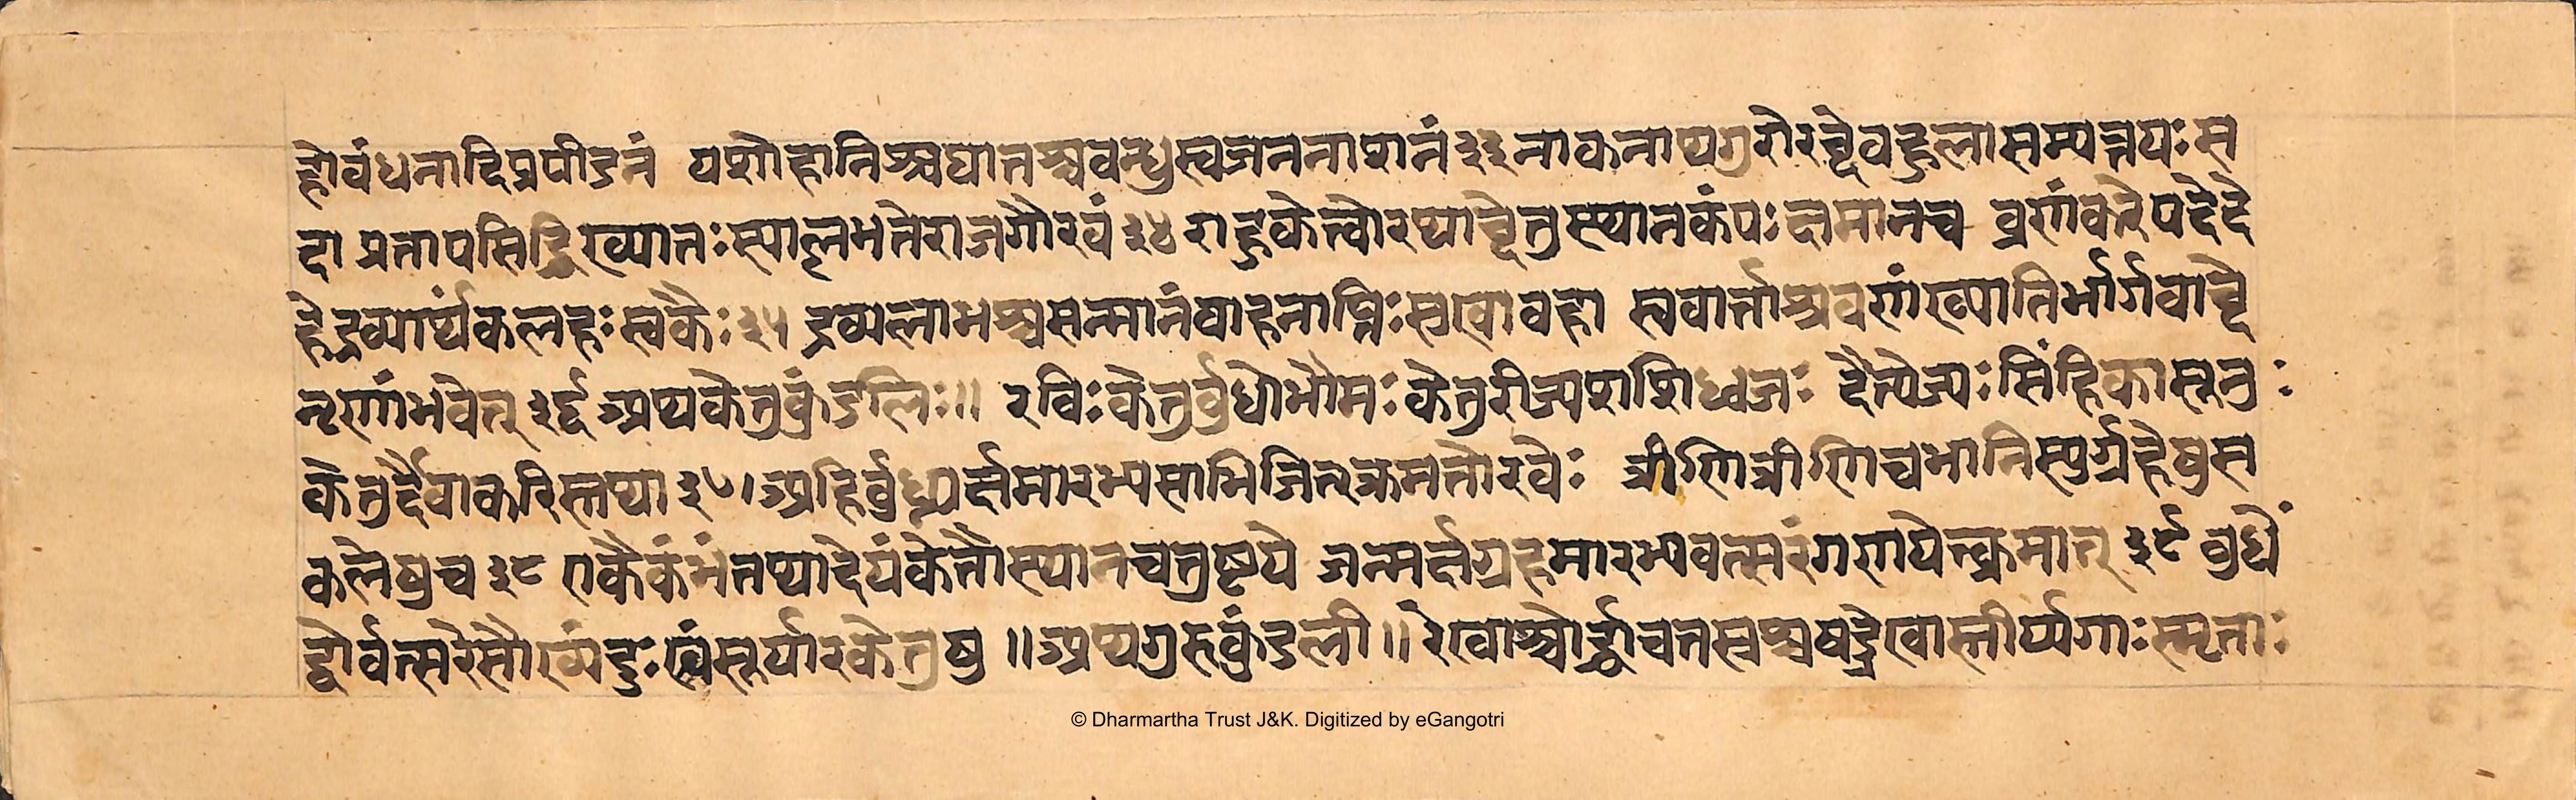 होवंधनादिप्रपीडनं यशोहानिश्चघातश्चवन्धुस्वजननाशनं३३नाकनाथगुरोरब्देवहुलासम्पन्नयः स
दा प्रतापसिद्धिख्यातः स्याल्लभतेराजगौरवं३४ राहुकेत्वोरथाब्देतुस्थानकंपः दामानच व्रणंकरेपदेदे
हेद्रव्यार्थंकलहः स्वकैः३५ द्रव्यलाभश्चसन्मानंवाहनाप्तिः सुखावहा स्ववार्त्ताश्रवणंख्यातिर्भार्गवाब्दे
नृणांभवेत् ३६ अथकेतुकुंडलिः॥ रविः केतुर्वुधोभौमः केतुरीज्यशशिध्वजः दैत्येज्यः सिंहिकासूनुः
केतुर्दैवाकरिस्तथा ३७।अहिर्वुध्न्यर्क्षमारभ्यसाभिजित्क्रमतोरवेः त्रीणित्रीणिचभानिस्युर्ग्रहेषुस
कलेषुच ३८ एकैकंभंतथादेयंकेतौस्थानचतुष्टये जन्मर्क्षग्रहमारभ्यवत्सरंगणयेत्क्रमात् ३९ वुधें
द्वोर्वत्सरेसौख्यंदुःखंसूर्यारकेतुषु ॥अथगुरुकुंडली॥ रेखाश्चोर्द्ध्वाचतस्रश्चषड्रेखास्तीर्य्यगाः स्मृताः
© Dharmartha Trust J&K. Digitized by eGangotri